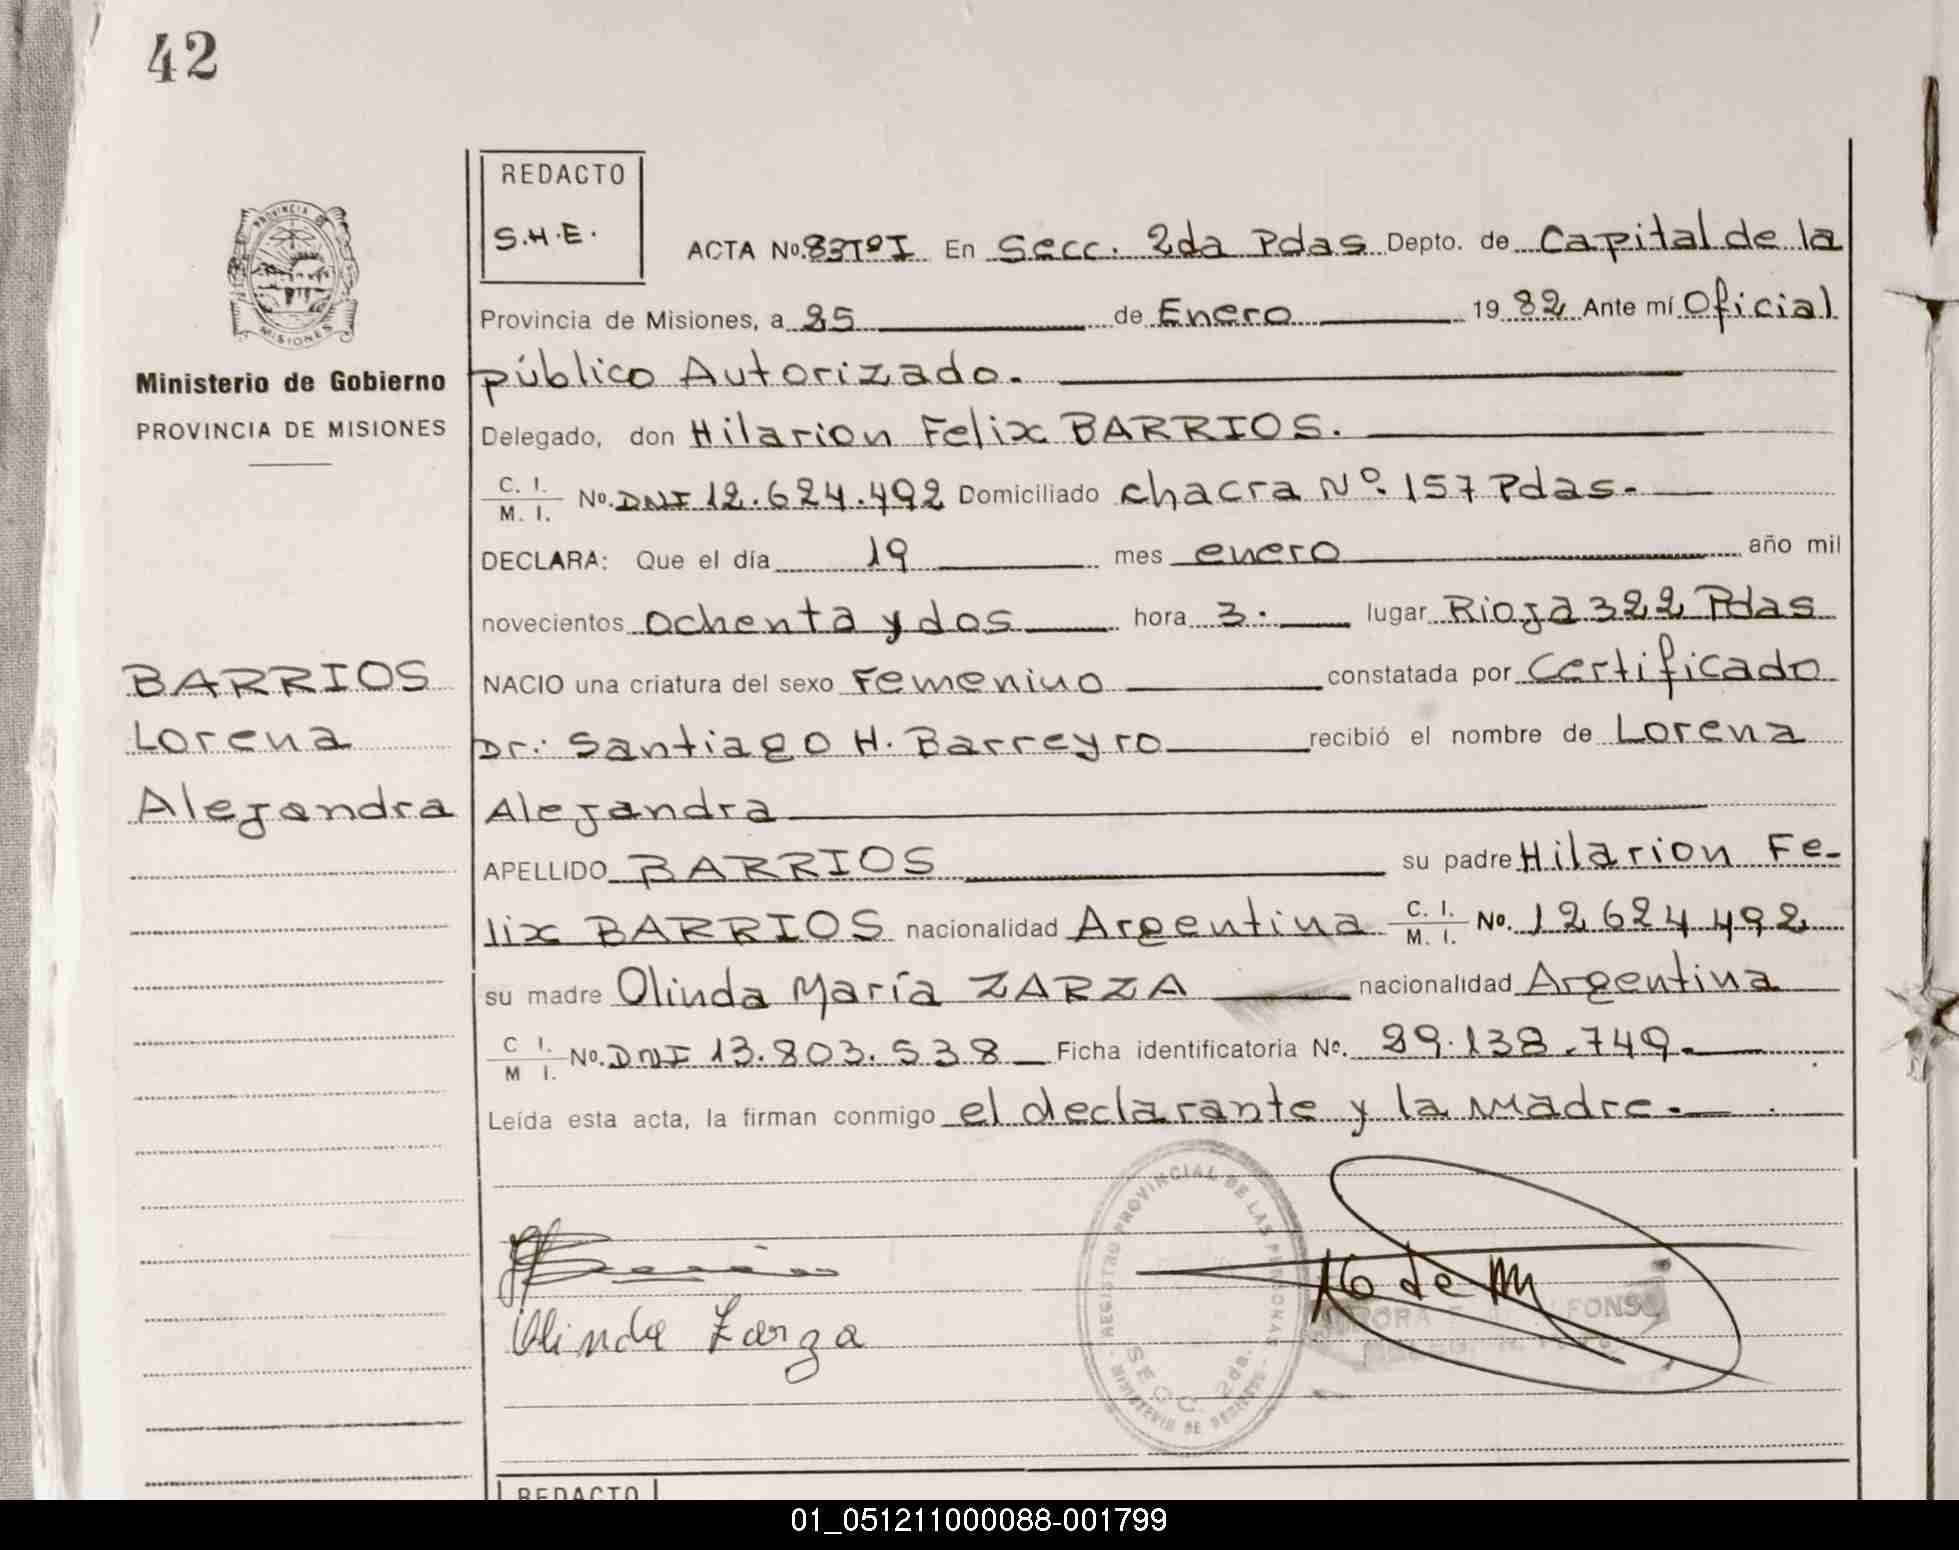 42
REDACTO
S.H.E.
ACTA No. 83TºI En Secc. 2da Pdas Depto. de Capital de la
Provincia de Misiones, a 25 de Enero 1982 Ante mí Oficial
público Autorizado.
Delegado, don Hilarion Felix BARRIOS.
C. I. / M. I. No. DNI 12.624.492 Domiciliado chacra Nº. 157 Pdas.
DECLARA: Que el día 19 mes enero año mil
novecientos ochenta y dos hora 3. lugar Rioja 322 Pdas
NACIO una criatura del sexo Femenino constatada por Certificado
Dr: Santiago H. Barreyro recibió el nombre de Lorena
Alejandra
APELLIDO BARRIOS su padre Hilarion Fe-
lix BARRIOS nacionalidad Argentina C. I. / M. I. No. 12624492
su madre Olinda María ZARZA nacionalidad Argentina
C I. / M I. No. DNI 13.803.538 Ficha identificatoria No. 29.138.749.
Leída esta acta, la firman conmigo el declarante y la madre.
PROVINCIA DE
MISIONES
Ministerio de Gobierno
PROVINCIA DE MISIONES
BARRIOS
Lorena
Alejandra
Olinda Zarza
REGISTRO PROVINCIAL DE LAS PERSONAS
SECC. 2da.
MINISTERIO DE GOBIERNO
REDACTO
01_051211000088-001799